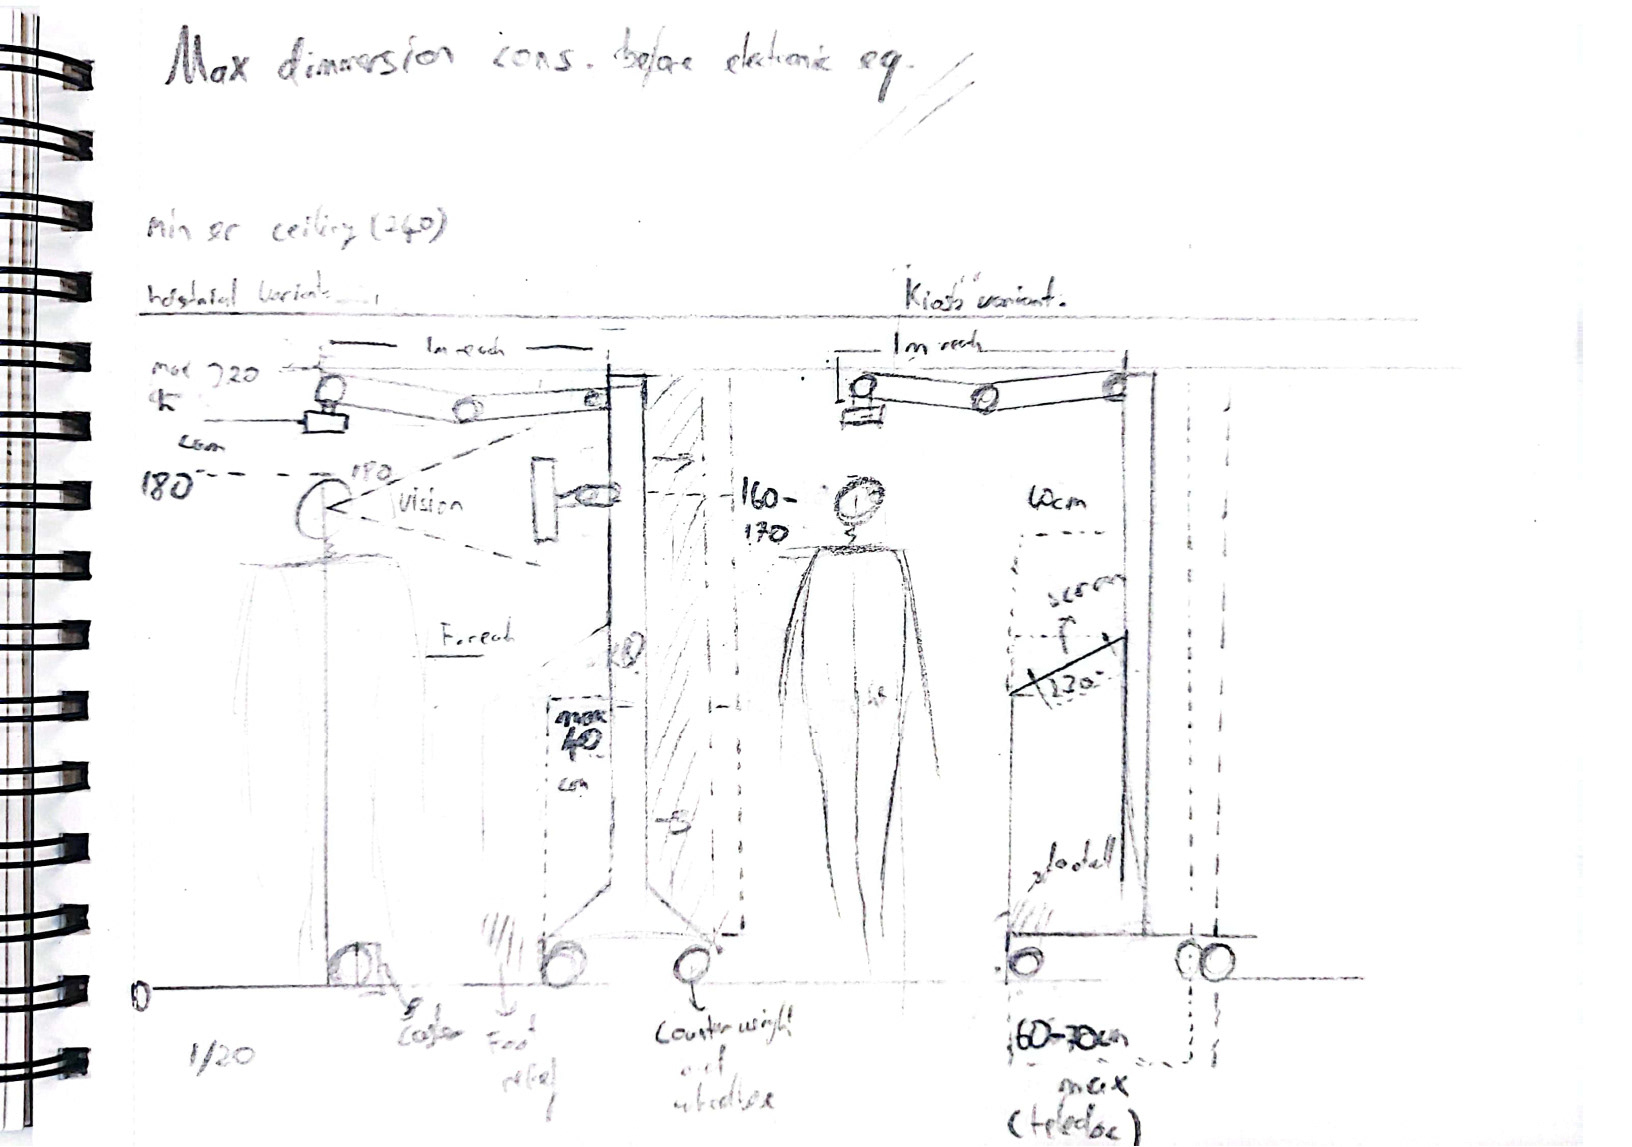 Max dimmersion cons. before electronic eq.
min er ceiling (240)
hospital Variant
Kiosk variant.
1m reach
1m reach
max 220
cam
180
180
Vision
160-
170
60cm
screen
F. reach
max
40
cm
230
0
1/20
Caster
Foot
relief
Counter weight
and
wheelbase
60-70cm
max
(teledoc)